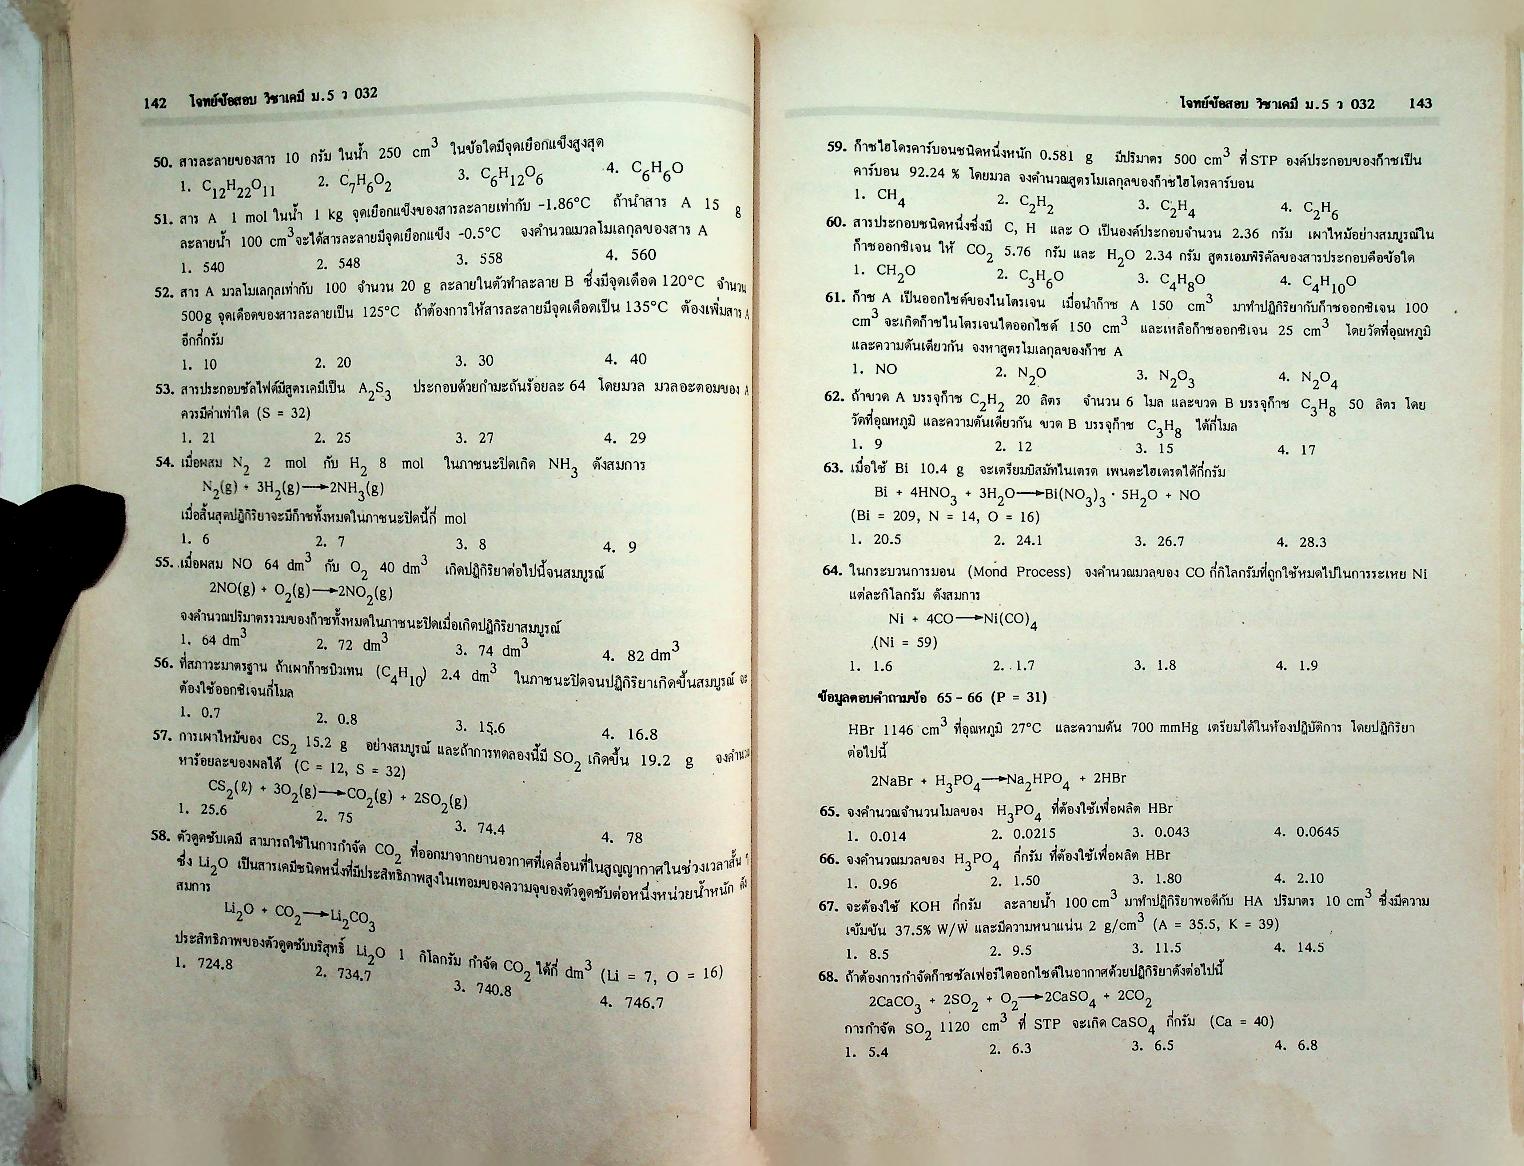 142 โจทย์ข้อสอบ วิชาเคมี ม.5 ว 032
50. สารละลายของสาร 10 กรัม ในน้ำ 250 cm³ ในข้อใดมีจุดเยือกแข็งสูงสุด
1. C₁₂H₂₂O₁₁ 2. C₇H₆O₂ 3. C₆H₁₂O₆ 4. C₆H₆O
51. สาร A 1 mol ในน้ำ 1 kg จุดเยือกแข็งของสารละลายเท่ากับ -1.86°C ถ้านำสาร A 15 g
ละลายน้ำ 100 cm³ จะได้สารละลายมีจุดเยือกแข็ง -0.5°C จงคำนวณมวลโมเลกุลของสาร A
1. 540 2. 548 3. 558 4. 560
52. สาร A มวลโมเลกุลเท่ากับ 100 จำนวน 20 g ละลายในตัวทำละลาย B ซึ่งมีจุดเดือด 120°C จำนวน
500g จุดเดือดของสารละลายเป็น 125°C ถ้าต้องการให้สารละลายมีจุดเดือดเป็น 135°C ต้องเพิ่มสาร A
อีกกี่กรัม
1. 10 2. 20 3. 30 4. 40
53. สารประกอบซัลไฟด์มีสูตรเคมีเป็น A₂S₃ ประกอบด้วยกำมะถันร้อยละ 64 โดยมวล มวลอะตอมของ A
ควรมีค่าเท่าใด (S = 32)
1. 21 2. 25 3. 27 4. 29
54. เมื่อผสม N₂ 2 mol กับ H₂ 8 mol ในภาชนะปิดเกิด NH₃ ดังสมการ
N₂(g) + 3H₂(g)⟶2NH₃(g)
เมื่อสิ้นสุดปฏิกิริยาจะมีก๊าซทั้งหมดในภาชนะปิดนี้กี่ mol
1. 6 2. 7 3. 8 4. 9
55. เมื่อผสม NO 64 dm³ กับ O₂ 40 dm³ เกิดปฏิกิริยาต่อไปนี้จนสมบูรณ์
2NO(g) + O₂(g)⟶2NO₂(g)
จงคำนวณปริมาตรรวมของก๊าซทั้งหมดในภาชนะปิดเมื่อเกิดปฏิกิริยาสมบูรณ์
1. 64 dm³ 2. 72 dm³ 3. 74 dm³ 4. 82 dm³
56. ที่สภาวะมาตรฐาน ถ้าเผาก๊าซบิวเทน (C₄H₁₀) 2.4 dm³ ในภาชนะปิดจนปฏิกิริยาเกิดขึ้นสมบูรณ์ จะ
ต้องใช้ออกซิเจนกี่โมล
1. 0.7 2. 0.8 3. 15.6 4. 16.8
57. การเผาไหม้ของ CS₂ 15.2 g อย่างสมบูรณ์ และถ้าการทดลองนี้มี SO₂ เกิดขึ้น 19.2 g จงคำนวณ
หาร้อยละของผลได้ (C = 12, S = 32)
CS₂(ℓ) + 3O₂(g)⟶CO₂(g) + 2SO₂(g)
1. 25.6 2. 75 3. 74.4 4. 78
58. ตัวดูดซับเคมี สามารถใช้ในการกำจัด CO₂ ที่ออกมาจากยานอวกาศที่เคลื่อนที่ในสูญญากาศในช่วงเวลาสั้น ๆ
ซึ่ง Li₂O เป็นสารเคมีชนิดหนึ่งที่มีประสิทธิภาพสูงในเทอมของความจุของตัวดูดซับต่อหนึ่งหน่วยน้ำหนัก ดัง
สมการ
Li₂O + CO₂⟶Li₂CO₃
ประสิทธิภาพของตัวดูดซับบริสุทธิ์ Li₂O 1 กิโลกรัม กำจัด CO₂ ได้กี่ dm³ (Li = 7, O = 16)
1. 724.8 2. 734.7 3. 740.8 4. 746.7
โจทย์ข้อสอบ วิชาเคมี ม.5 ว 032 143
59. ก๊าซไฮโดรคาร์บอนชนิดหนึ่งหนัก 0.581 g มีปริมาตร 500 cm³ ที่ STP องค์ประกอบของก๊าซเป็น
คาร์บอน 92.24 % โดยมวล จงคำนวณสูตรโมเลกุลของก๊าซไฮโดรคาร์บอน
1. CH₄ 2. C₂H₂ 3. C₂H₄ 4. C₂H₆
60. สารประกอบชนิดหนึ่งซึ่งมี C, H และ O เป็นองค์ประกอบจำนวน 2.36 กรัม เผาไหม้อย่างสมบูรณ์ใน
ก๊าซออกซิเจน ให้ CO₂ 5.76 กรัม และ H₂O 2.34 กรัม สูตรเอมพิริคัลของสารประกอบคือข้อใด
1. CH₂O 2. C₃H₆O 3. C₄H₈O 4. C₄H₁₀O
61. ก๊าซ A เป็นออกไซด์ของไนโตรเจน เมื่อนำก๊าซ A 150 cm³ มาทำปฏิกิริยากับก๊าซออกซิเจน 100
cm³ จะเกิดก๊าซไนโตรเจนไดออกไซด์ 150 cm³ และเหลือก๊าซออกซิเจน 25 cm³ โดยวัดที่อุณหภูมิ
และความดันเดียวกัน จงหาสูตรโมเลกุลของก๊าซ A
1. NO 2. N₂O 3. N₂O₃ 4. N₂O₄
62. ถ้าขวด A บรรจุก๊าซ C₂H₂ 20 ลิตร จำนวน 6 โมล และขวด B บรรจุก๊าซ C₃H₈ 50 ลิตร โดย
วัดที่อุณหภูมิ และความดันเดียวกัน ขวด B บรรจุก๊าซ C₃H₈ ได้กี่โมล
1. 9 2. 12 3. 15 4. 17
63. เมื่อใช้ Bi 10.4 g จะเตรียมบิสมัทไนเตรต เพนตะไฮเดรตได้กี่กรัม
Bi + 4HNO₃ + 3H₂O⟶Bi(NO₃)₃ · 5H₂O + NO
(Bi = 209, N = 14, O = 16)
1. 20.5 2. 24.1 3. 26.7 4. 28.3
64. ในกระบวนการมอน (Mond Process) จงคำนวณมวลของ CO กี่กิโลกรัมที่ถูกใช้หมดไปในการระเหย Ni
แต่ละกิโลกรัม ดังสมการ
Ni + 4CO⟶Ni(CO)₄
(Ni = 59)
1. 1.6 2. 1.7 3. 1.8 4. 1.9
ข้อมูลตอบคำถามข้อ 65 - 66 (P = 31)
HBr 1146 cm³ ที่อุณหภูมิ 27°C และความดัน 700 mmHg เตรียมได้ในห้องปฏิบัติการ โดยปฏิกิริยา
ต่อไปนี้
2NaBr + H₃PO₄⟶Na₂HPO₄ + 2HBr
65. จงคำนวณจำนวนโมลของ H₃PO₄ ที่ต้องใช้เพื่อผลิต HBr
1. 0.014 2. 0.0215 3. 0.043 4. 0.0645
66. จงคำนวณมวลของ H₃PO₄ กี่กรัม ที่ต้องใช้เพื่อผลิต HBr
1. 0.96 2. 1.50 3. 1.80 4. 2.10
67. จะต้องใช้ KOH กี่กรัม ละลายน้ำ 100 cm³ มาทำปฏิกิริยาพอดีกับ HA ปริมาตร 10 cm³ ซึ่งมีความ
เข้มข้น 37.5% W/W และมีความหนาแน่น 2 g/cm³ (A = 35.5, K = 39)
1. 8.5 2. 9.5 3. 11.5 4. 14.5
68. ถ้าต้องการกำจัดก๊าซซัลเฟอร์ไดออกไซด์ในอากาศด้วยปฏิกิริยาดังต่อไปนี้
2CaCO₃ + 2SO₂ + O₂⟶2CaSO₄ + 2CO₂
การกำจัด SO₂ 1120 cm³ ที่ STP จะเกิด CaSO₄ กี่กรัม (Ca = 40)
1. 5.4 2. 6.3 3. 6.5 4. 6.8